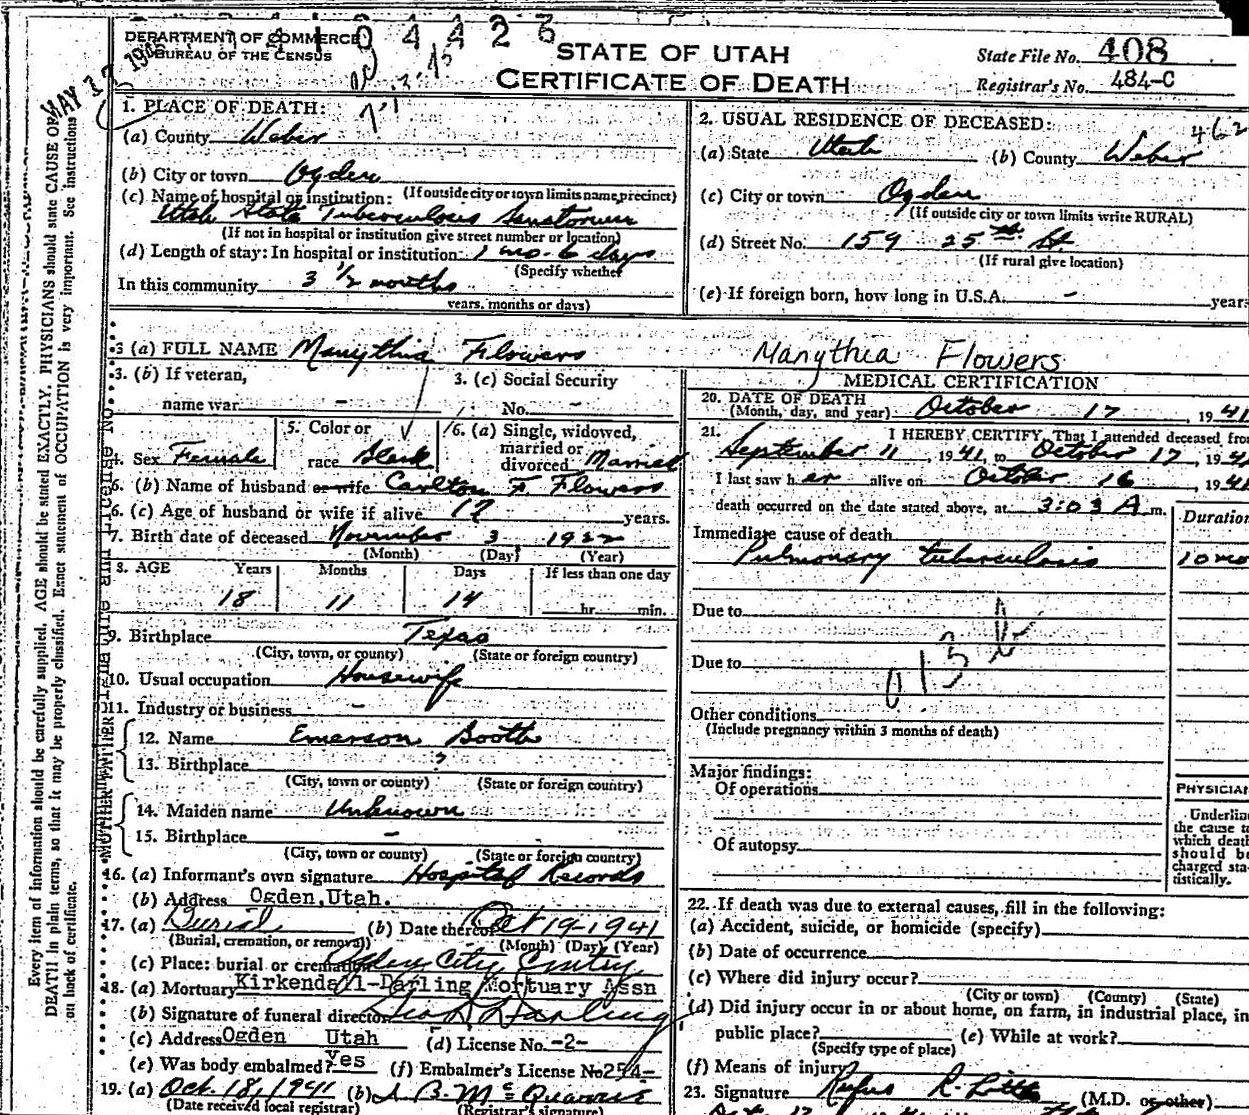 DEPARTMENT OF COMMERCE
BUREAU OF THE CENSUS
MAY 13
STATE OF UTAH
CERTIFICATE OF DEATH
State File No. 408
Registrar's No. 484-C
1. PLACE OF DEATH:
(a) County Weber
(b) City or town Ogden
(c) Name of hospital or institution: (If outside city or town limits name precinct)
Utah State Tuberculous
(If not in hospital or institution give street number or location)
(d) Length of stay: In hospital or institution 1 mo. 6 days
(Specify whether
In this community 3 1/2 months
years, months or days)
2. USUAL RESIDENCE OF DECEASED: 462
(a) State Utah (b) County Weber
(c) City or town Ogden
(If outside city or town limits write RURAL)
(d) Street No. 159 25th St
(If rural give location)
(e) If foreign born, how long in U.S.A. - years
3 (a) FULL NAME Manythia Flowers
Manythea Flowers
3. (b) If veteran,
name war -
3. (c) Social Security
No. -
4. Sex Female
5. Color or
race Black
6. (a) Single, widowed,
married or
divorced Married
6. (b) Name of husband or wife Carlton F. Flowers
6. (c) Age of husband or wife if alive years.
7. Birth date of deceased November 3 1922
(Month) (Day) (Year)
8. AGE Years Months Days If less than one day
18 11 14 hr. min.
9. Birthplace Texas
(City, town, or county) (State or foreign country)
10. Usual occupation Housewife
11. Industry or business -
FATHER
12. Name Emerson Booth
13. Birthplace ?
(City, town or county) (State or foreign country)
MOTHER
14. Maiden name Unknown
15. Birthplace -
(City, town or county) (State or foreign country)
16. (a) Informant's own signature Hospital Records
(b) Address Ogden, Utah.
17. (a) Burial (b) Date thereof Oct 19-1941
(Burial, cremation, or removal) (Month) (Day) (Year)
(c) Place: burial or cremation Ogden City Cmtry
18. (a) Mortuary Kirkendall-Darling Mortuary Assn
(b) Signature of funeral director Darling
(c) Address Ogden Utah (d) License No. -2-
(e) Was body embalmed? Yes (f) Embalmer's License No 254-
19. (a) Oct. 18, 1941 (b)
(Date received local registrar) (Registrar's signature)
MEDICAL CERTIFICATION
20. DATE OF DEATH
(Month, day, and year) October 17, 1941
21. I HEREBY CERTIFY, That I attended deceased from
September 11, 1941, to October 17, 194
I last saw her alive on October 16, 194
death occurred on the date stated above, at 3:03 A m.
Duration
Immediate cause of death
Pulmonary tuberculosis 10 mo
Due to
013
Due to
Other conditions
(Include pregnancy within 3 months of death)
Major findings:
Of operations
Of autopsy
PHYSICIAN
Underline
the cause to
which death
should be
charged sta-
tistically.
22. If death was due to external causes, fill in the following:
(a) Accident, suicide, or homicide (specify)
(b) Date of occurrence
(c) Where did injury occur?
(City or town) (County) (State)
(d) Did injury occur in or about home, on farm, in industrial place, in
public place? (e) While at work?
(Specify type of place)
(f) Means of injury
23. Signature Rufus R. Little (M.D. or other)
Every item of information should be carefully supplied. AGE should be stated EXACTLY. PHYSICIANS should state CAUSE OF
DEATH in plain terms, so that it may be properly classified. Exact statement of OCCUPATION is very important. See instructions
on back of certificate.